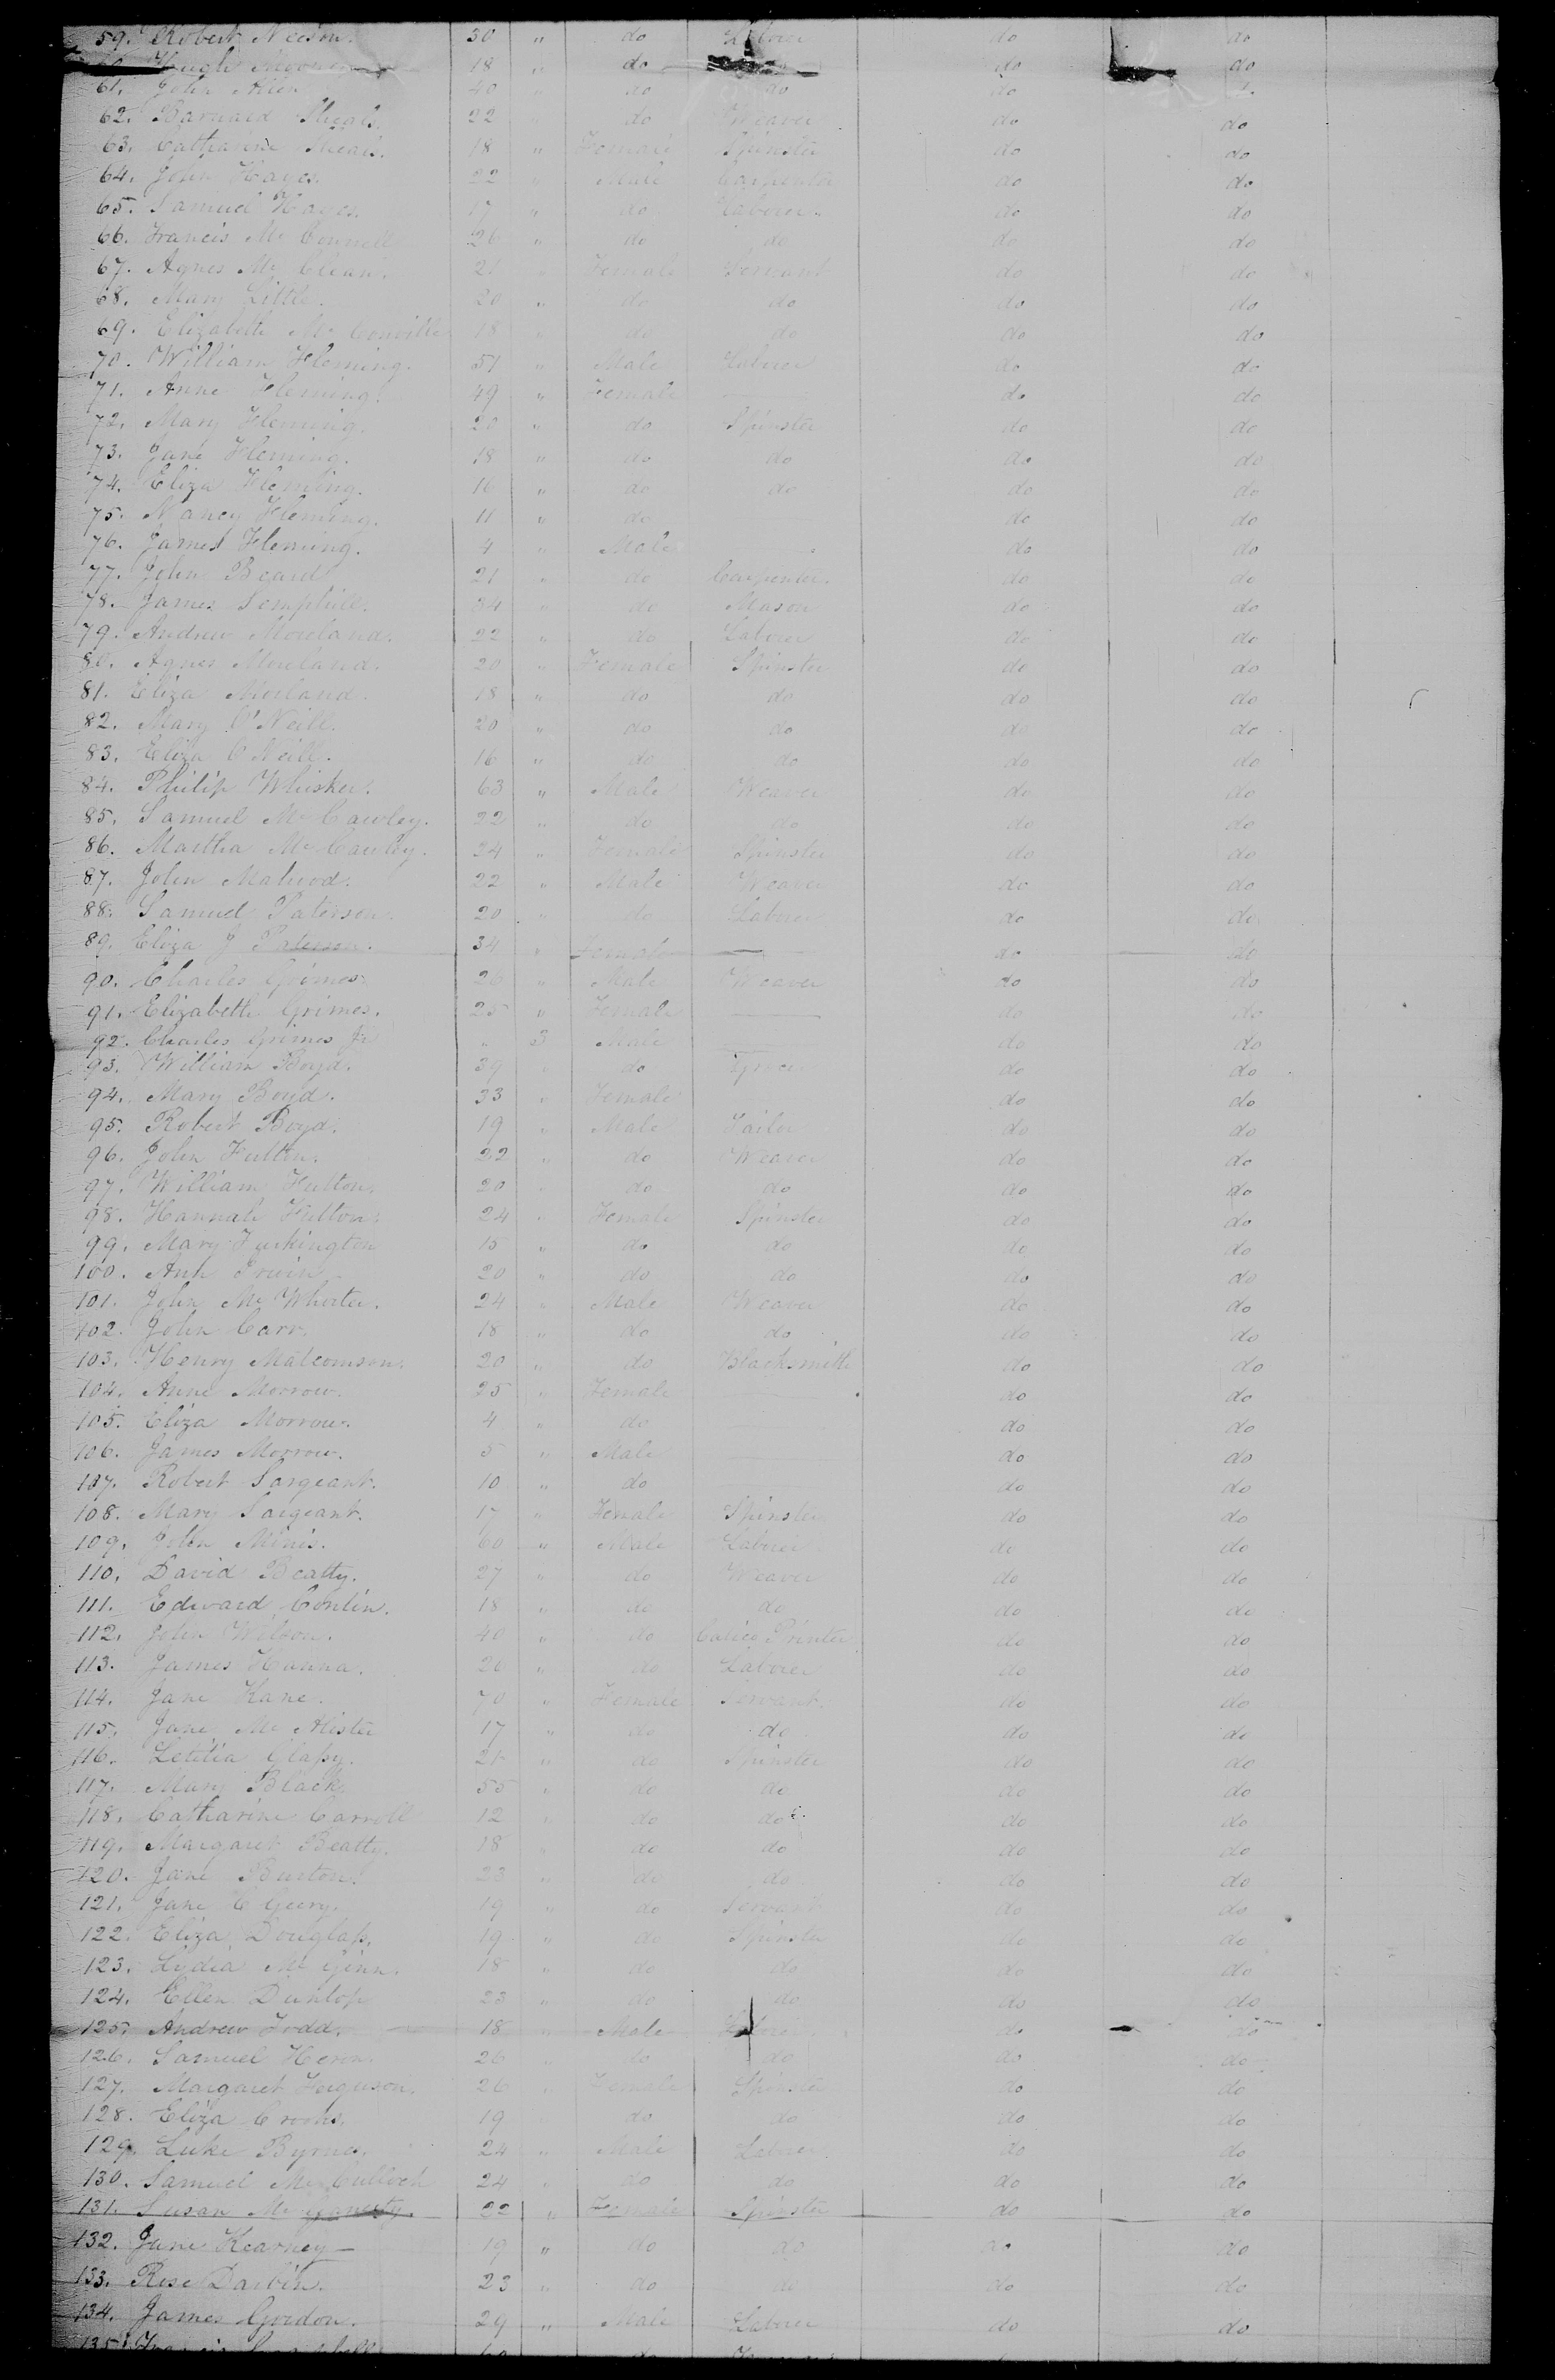 59. Robert Neeson. 30 " do Laborer do do
Hugh 18 " do do do
61. John 40 " do do do
62. Barnard Sheals. 22 do Weaver do do
63. Catharine Sheals. 18 " Female Spinster do do
64. John Hayes. 22 Male Carpenter do do
65. Samuel Hayes. 17 " do Laborer. do do
66. Francis Mc Connell 26 " do do do do
67. Agnes Mc Clean. 21 " Female Servant do do
68. Mary Little. 20 " do do do do
69. Elizabeth Mc Conville 18 " do do do do
70. William Fleming. 51 " Male Laborer do do
71. Anne Fleming. 49 " Female — do do
72. Mary Fleming. 20 " do Spinster do do
73. Jane Fleming. 18 " do do do do
74. Eliza Fleming. 16 " do do do do
75. Nancy Fleming. 11 " do do do
76. James Fleming. 4 " Male do do
77. John Beard 21 " do Carpenter. do do
78. James Semphill. 34 " do Mason do do
79. Andrew Moreland. 22 " do Laborer do do
80. Agnes Moreland. 20 " Female Spinster do do
81. Eliza Moreland. 18 " do do do do
82. Mary O'Neill. 20 " do do do do
83. Eliza O'Neill. 16 " do do do do
84. Philip Whisker. 63 " Male Weaver do do
85. Samuel Mc Cawley. 22 " do do do do
86. Martha Mc Cawley. 24 " Female Spinster do do
87. John 22 " Male Weaver do do
88. Samuel Paterson. 20 " do Laborer do do
89. Eliza J Paterson. 34 " Female — do do
90. Charles Grimes 26 " Male Weaver do do
91. Elizabeth Grimes. 25 " Female — do do
92. Charles Grimes Jr " 3 Male — do do
93. William Boyd. 39 " do Grocer do do
94. Mary Boyd. 33 " Female do do
95. Robert Boyd. 19 " Male Tailor do do
96. John Fulton. 22 " do Weaver do do
97. William Fulton. 20 " do do do do
98. Hannah Fulton. 24 " Female Spinster do do
99. Mary Turkington 15 " do do do do
100. Ann Irwin 20 " do do do do
101. John Mc Whorter. 24 " Male Weaver do do
102. John Carr. 18 " do do do do
103. Henry Malcomson. 20 " do Blacksmith do do
104. Anne Morrow. 25 " Female do do
105. Eliza Morrow. 4 " do do do
106. James Morrow. 5 " Male do do
107. Robert Sargeant. 10 " do do do
108. Mary Sargeant. 17 " Female Spinster do do
109. John Minis. 60 " Male Laborer do do
110. David Beatty. 27 " do Weaver do do
111. Edward Conlin. 18 " do do do do
112. John Wilson. 40 " do Calico Printer do do
113. James Hanna. 26 " do Laborer do do
114. Jane Kane. 70 " Female Servant. do do
115. Jane Mc Alister 17 " do do do do
116. Letitia Glassy. 21 " do Spinster do do
117. Mary Black 55 " do do do do
118. Catharine Carroll 12 " do do do do
119. Margaret Beatty. 18 " do do do do
120. Jane Burton. 23 " do do do do
121. Jane C 19 " do Servant do do
122. Eliza Douglass. 19 " do Spinster do do
123. Lydia Mc Ginn. 18 " do do do do
124. Ellen Dunlop 23 " do do do do
125. Andrew Todd. 18 " Male Laborer do do
126. Samuel Heron. 26 " do do do do
127. Margaret Ferguson. 26 " Female Spinster do do
128. Eliza Crooks. 19 do do do do
129. Luke Byrnes. 24 " Male Laborer do do
130. Samuel Mc Culloch 24 " do do do do
131. Susan Mc 22 " Female Spinster do do
132. Jane Kearney — 19 " do do do do
133. Rose Darbin. 23 " do do do do
134. James Gordon. 29 " Male Laborer do do
135.